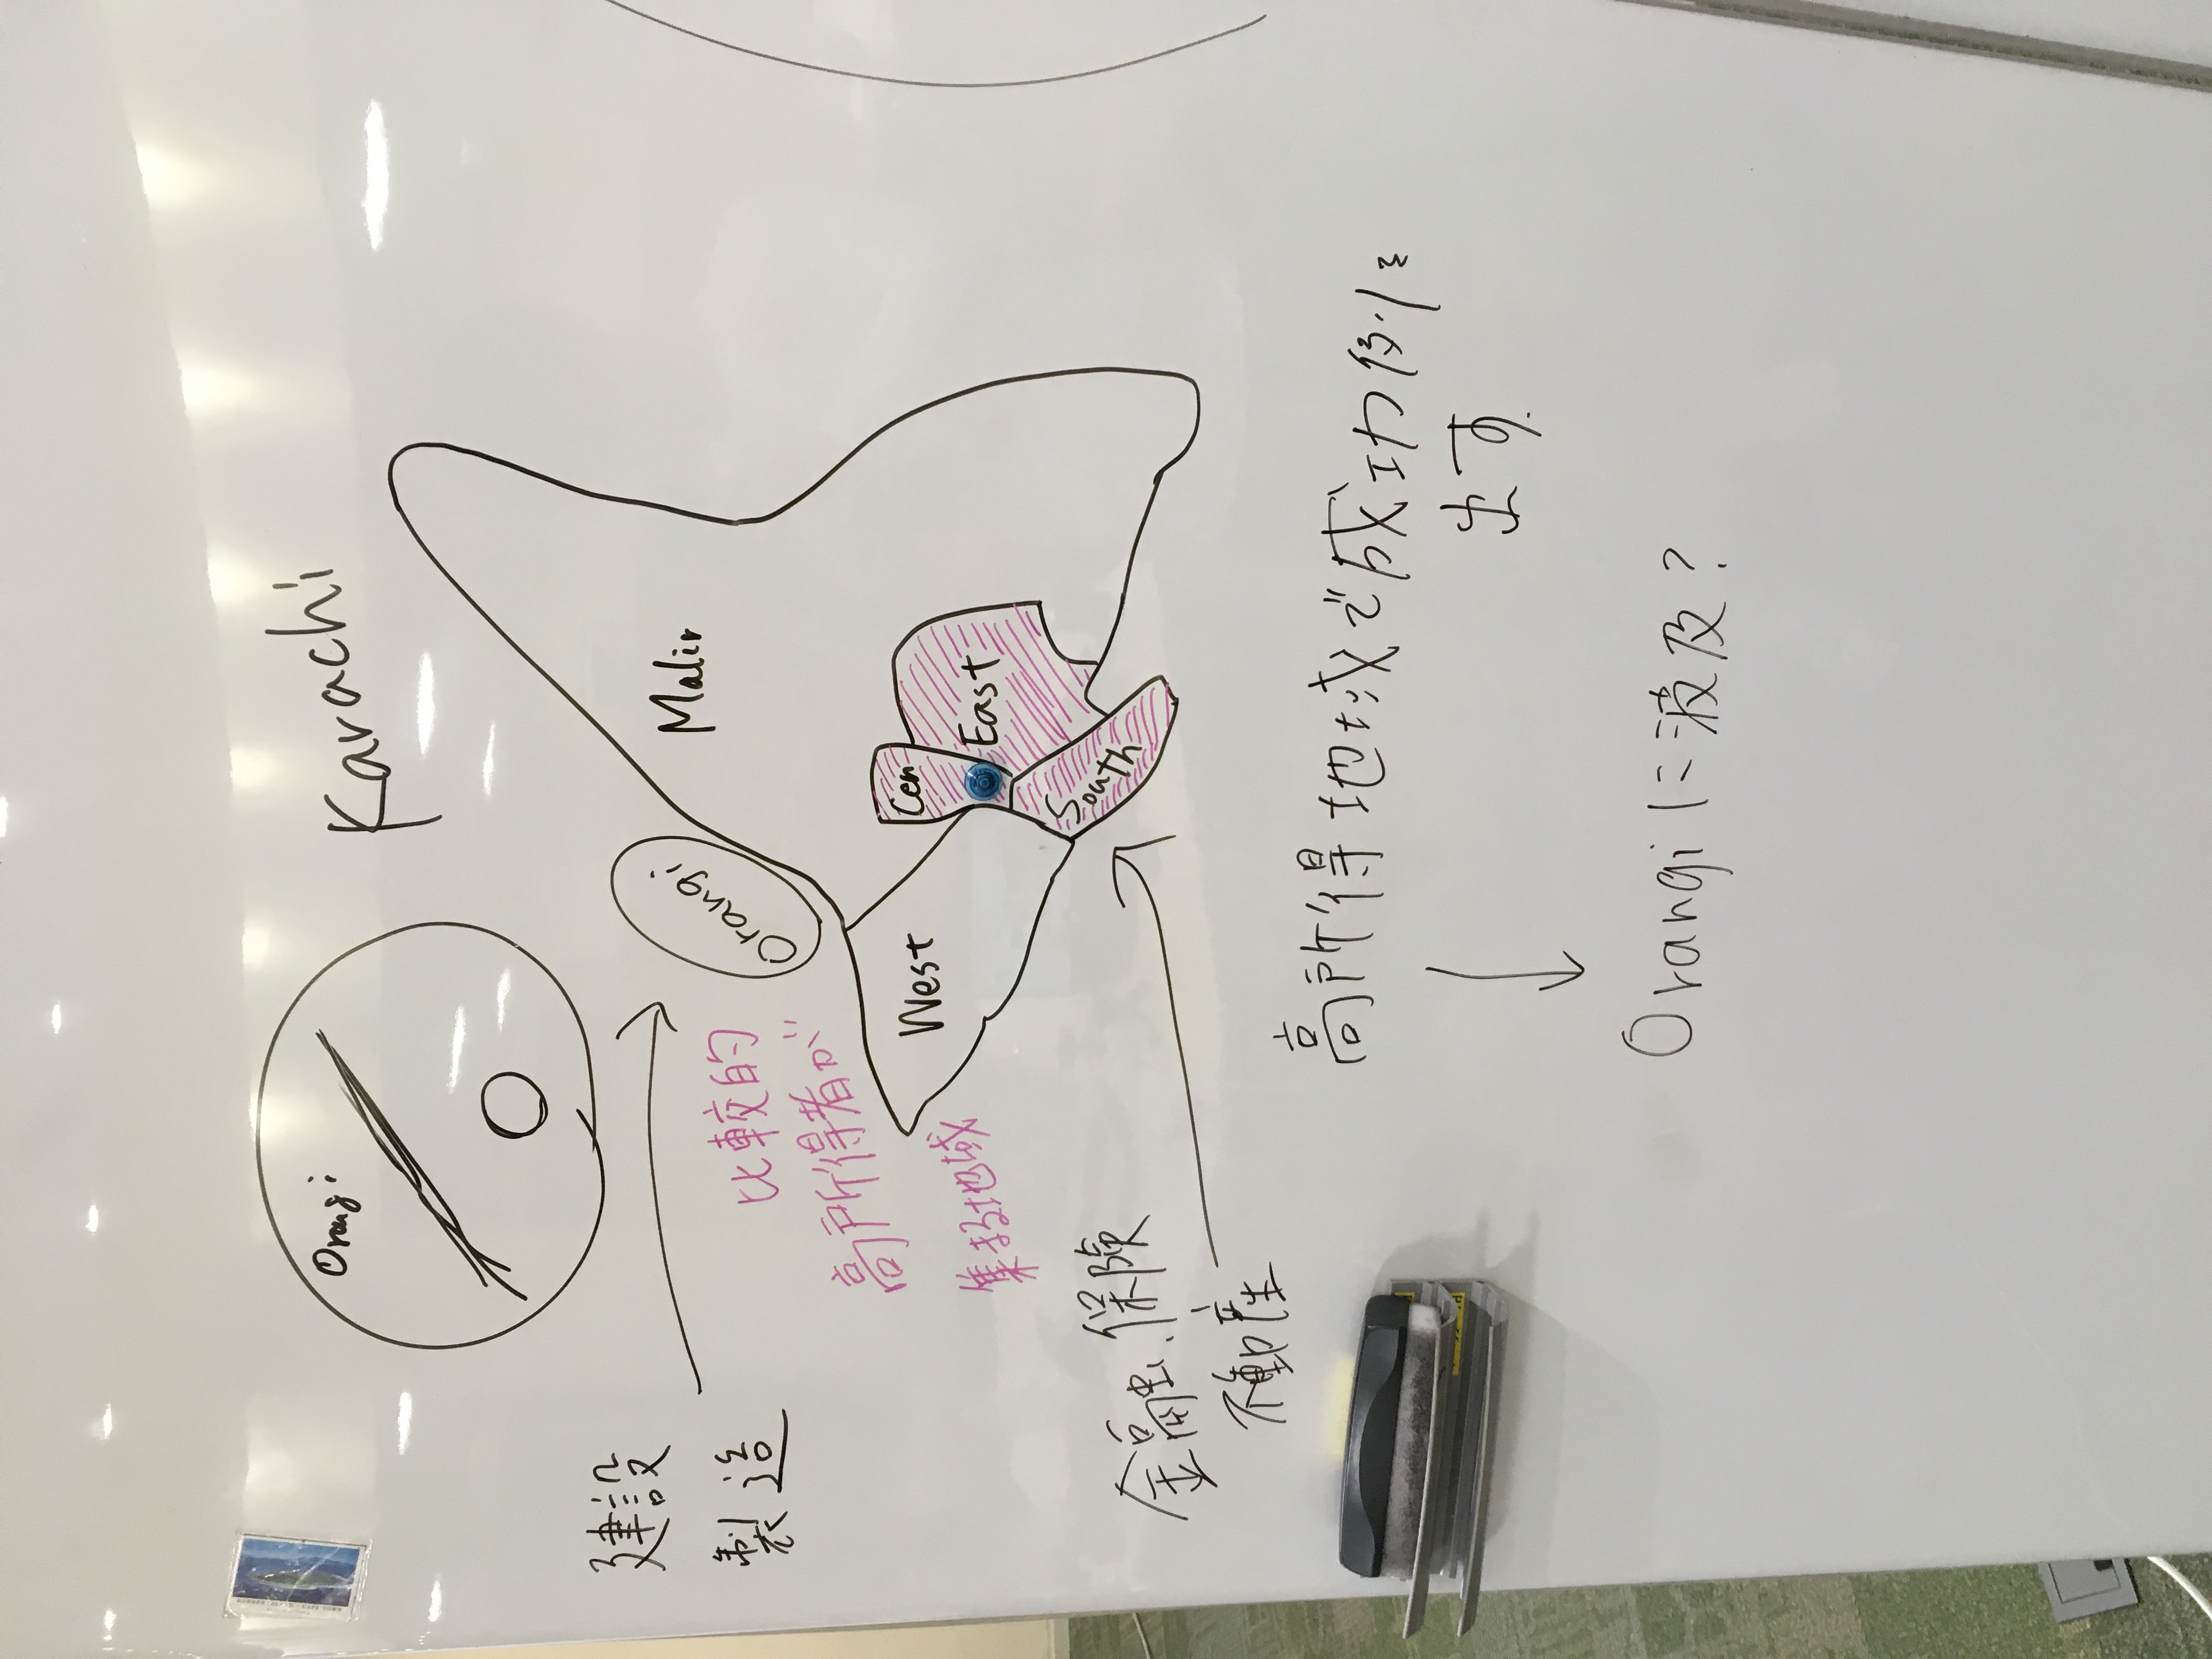 Orangi
Karachi
建設
製造
Orangi
Malir
比較的
高所得者が
集まる地域
West
Cen
East
South
金融、保険
不動産
高所得地域で成功例を
出す
Orangiに波及?